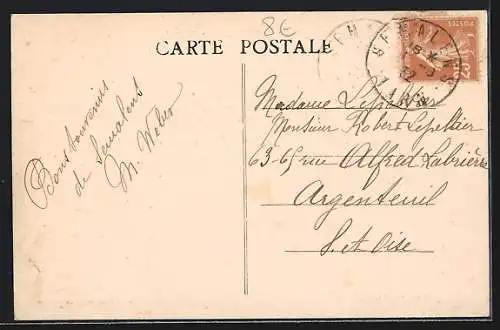 8€
CARTE POSTALE
Bons souvenirs
de Semalens
M. Weber
SEMAL
TARN
POSTES
25
Madame Lepeltier
Monsieur Robert Lepeltier
63-65 rue Alfred Labrière
Argenteuil
S. et Oise